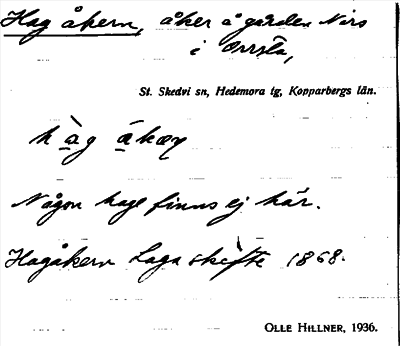 Hagåkern, åker å gården Nirs
i Orrsta,
St. Skedvi sn, Hedemora tg, Kopparbergs län.
hàg ákæṇ
Någon hage finns ej här.
Hagåkern Laga skifte 1868.
OLLE HILLNER, 1936.